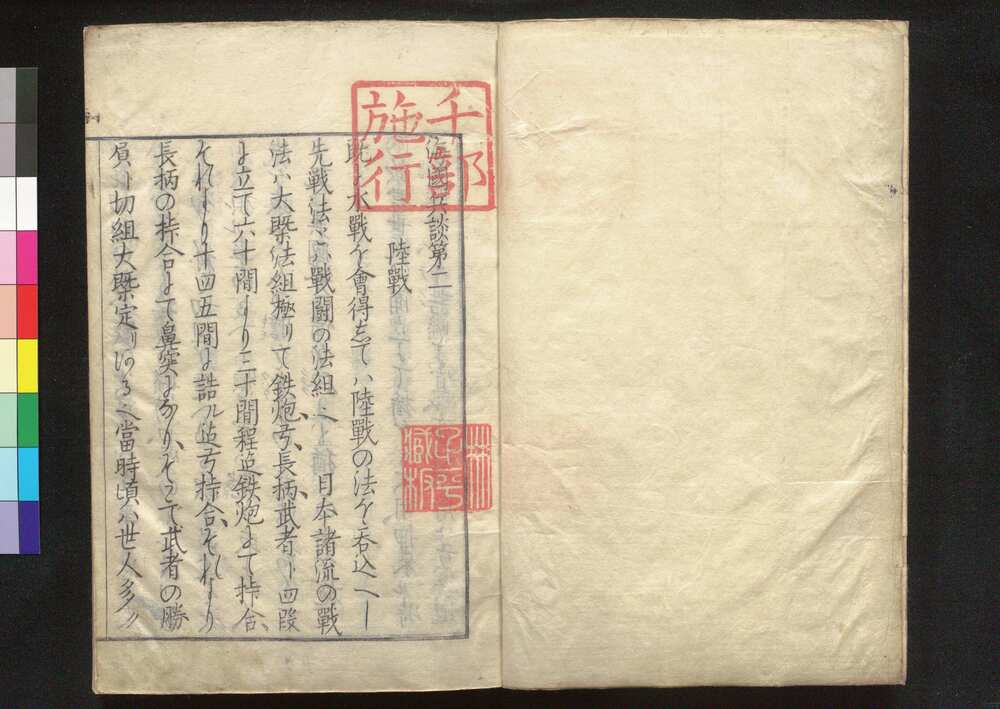 千部
施行
海國兵談第二
陸戰
既に水戰を會得志てハ陸戰の法を呑込へし
先戰法とハ戰闘の法組也日本諸流の戰
法ハ大槩法組極りて鉄炮、弓、長柄、武者と四段
に立て六十間より三十間程迄鉄炮にて持合、
それより十四五間に詰ル迄弓持合、それより
長柄の持合にて鼻突になり、そこて武者の勝
負と切組大槩定りある也當時頃ハ世人多ク
林
子平
藏板